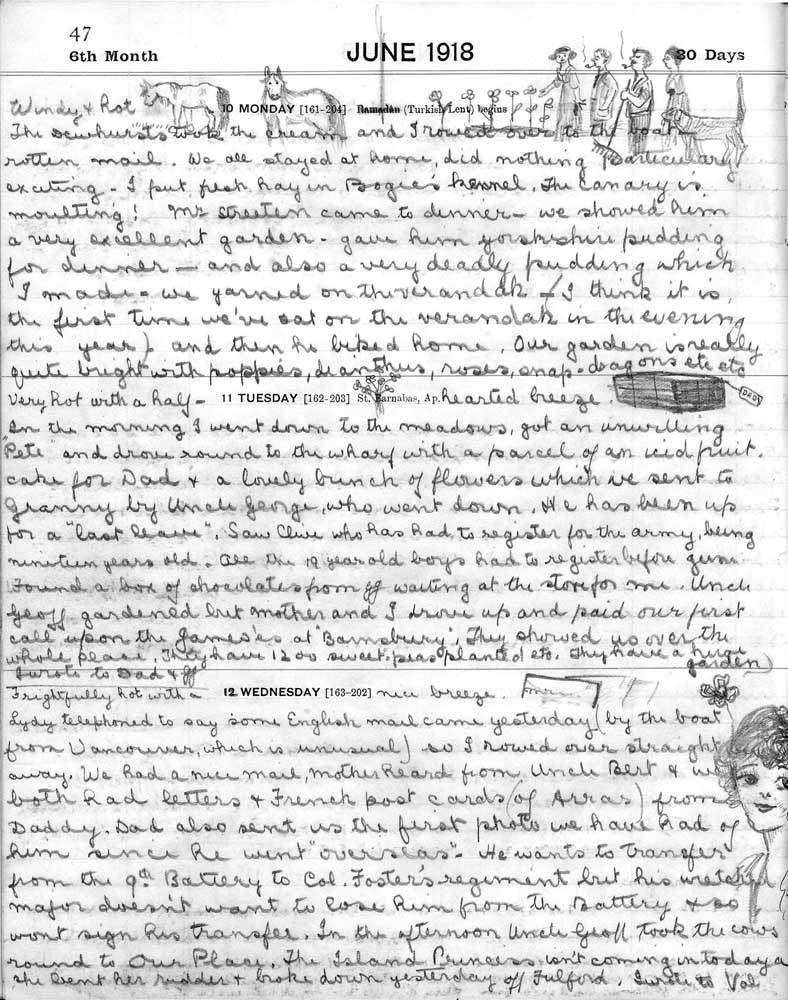 47
6th Month JUNE 1918 30 Days
Windy & hot 10 MONDAY [161-204] Ramadân (Turkish Lent) begins
The Dewhursts took the cream and I rowed over to the boat
rotten mail. We all stayed at home, did nothing particulary
exciting - I put fresh hay in Bogie's kennel. The Canary is
moulting! Mr Streeten came to dinner - we showed him
a very excellent garden - gave him yorskshire pudding
for dinner — and also a very deadly pudding which
I made - we yarned on the verandah (I think it is
the first time we've sat on the verandah in the evening
this year) and then he biked home. Our garden is really
quite bright with poppies, dianthus, roses, snap-dragons etc etc
Very hot with a half - 11 TUESDAY [162-203] St. Barnabas, Ap. hearted breeze.
In the morning I went down to the meadows, got an unwilling
"Pete" and drove round to the wharf with a parcel of an iced fruit.
cake for Dad & a lovely bunch of flowers which we sent to
Granny by Uncle George, who went down. He has been up
for a "last leave". Saw Clive who has had to register for the army, being
nineteen years old. All the 19 year old boys had to register before June
Found a box of chocolates from waiting at the store for me. Uncle
Geoff gardened but mother and I drove up and paid our first
call upon the James'es at "Barnsbury". They showed us over the
whole place. They have 1200 sweet-peas planted etc. They have a huge
garden)
I wrote to Dad &
Frightfully hot with a 12 WEDNESDAY [163-202] nice breeze.
Lydy telephoned to say some English mail came yesterday (by the boat
from Vancouver, which is unusual) so I rowed over straight
away. We had a nice mail, mother heard from Uncle Bert & we
both had letters & French post cards (of Arras) from
Daddy. Dad also sent us the first photo we have had of
him since he went "overseas" - He wants to transfer
from the 9th Battery to Col. Foster's regiment but his wretched
major doesn't want to lose him from the Battery & so
wont sign his transfer. In the afternoon Uncle Geoff took the cows
round to Our Place. The Island Princess isn't coming in today a
she bent her rudder & broke down yesterday off Fulford. I wrote to Val